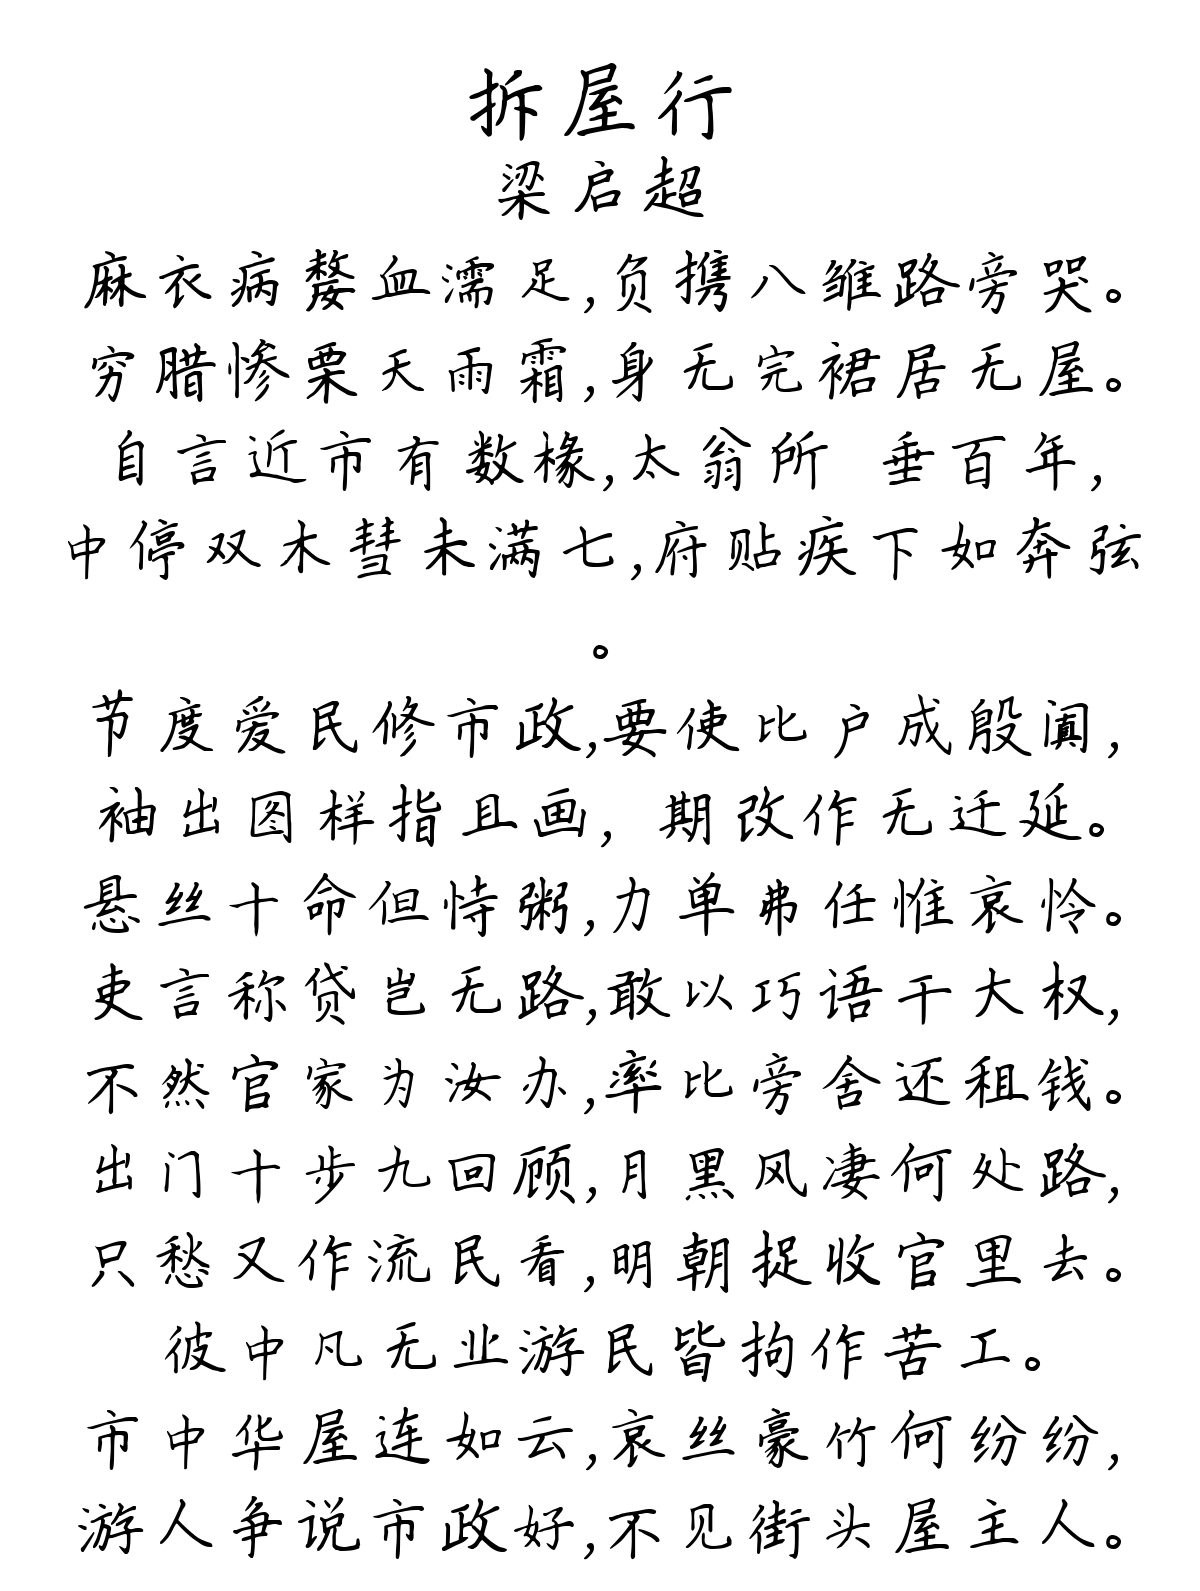 拆屋行
梁启超
麻衣病嫠血濡足,负携八雏路旁哭。
穷腊惨栗天雨霜,身无完裙居无屋。
自言近市有数椽,太翁所 垂百年,
中停双木彗未满七,府贴疾下如奔弦
。
节度爱民修市政,要使比户成殷阗,
袖出图样指且画，期改作无迁延。
悬丝十命但恃粥,力单弗任惟哀怜。
吏言称贷岂无路,敢以巧语干大权,
不然官家为汝办,率比旁舍还租钱。
出门十步九回顾,月黑风凄何处路,
只愁又作流民看,明朝捉收官里去。
彼中凡无业游民皆拘作苦工。
市中华屋连如云,哀丝豪竹何纷纷,
游人争说市政好,不见街头屋主人。